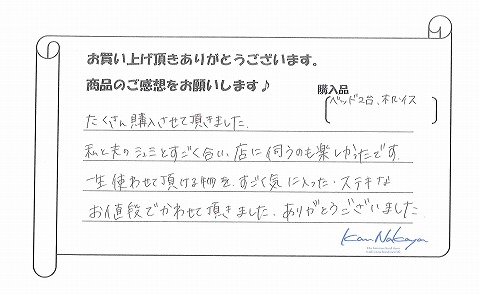 お買い上げ頂きありがとうございます。
商品のご感想をお願いします♪
購入品
ベッド2台、木R-イス
たくさん購入させて頂きました。
私と夫のシュミとすごく合い、店に伺うのも楽しかったです。
一生使わせて頂ける物を、すごく気に入った・ステキな
お値段でかわせて頂きました。ありがとうございました
Kan Nakaya